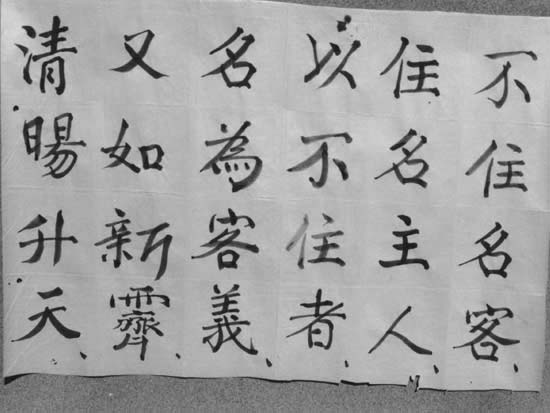 不住名客、
住名主人、
以不住者、
名為客義、
又如新霽、
清暘升天、